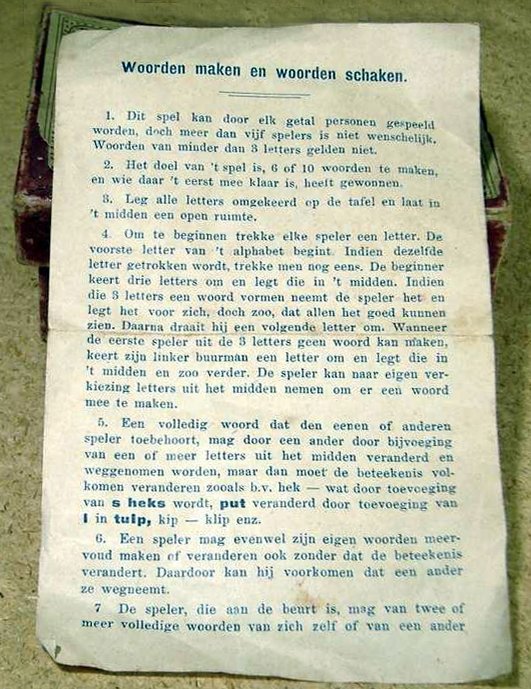 Woorden maken en woorden schaken.
1. Dit spel kan door elk getal personen gespeeld
worden, doch meer dan vijf spelers is niet wenschelijk.
Woorden van minder dan 3 letters gelden niet.
2. Het doel van 't spel is, 6 of 10 woorden te maken,
en wie daar 't eerst mee klaar is, heeft gewonnen.
3. Leg alle letters omgekeerd op de tafel en laat in
't midden een open ruimte.
4. Om te beginnen trekke elke speler een letter. De
voorste letter van 't alphabet begint. Indien dezelfde
letter getrokken wordt, trekke men nog eens. De beginner
keert drie letters om en legt die in 't midden. Indien
die 3 letters een woord vormen neemt de speler het en
legt het voor zich, doch zoo, dat allen het goed kunnen
zien. Daarna draait hij een volgende letter om. Wanneer
de eerste speler uit de 3 letters geen woord kan maken,
keert zijn linker buurman een letter om en legt die in
't midden en zoo verder. De speler kan naar eigen ver-
kiezing letters uit het midden nemen om er een woord
mee te maken.
5. Een volledig woord dat den eenen of anderen
speler toebehoort, mag door een ander door bijvoeging
van een of meer letters uit het midden veranderd en
weggenomen worden, maar dan moet de beteekenis vol-
komen veranderen zooals b.v. hek — wat door toevoeging
van s heks wordt, put veranderd door toevoeging van
l in tulp, kip — klip enz.
6. Een speler mag evenwel zijn eigen woorden meer-
voud maken of veranderen ook zonder dat de beteekenis
verandert. Daardoor kan hij voorkomen dat een ander
ze wegneemt.
7 De speler, die aan de beurt is, mag van twee of
meer volledige woorden van zich zelf of van een ander